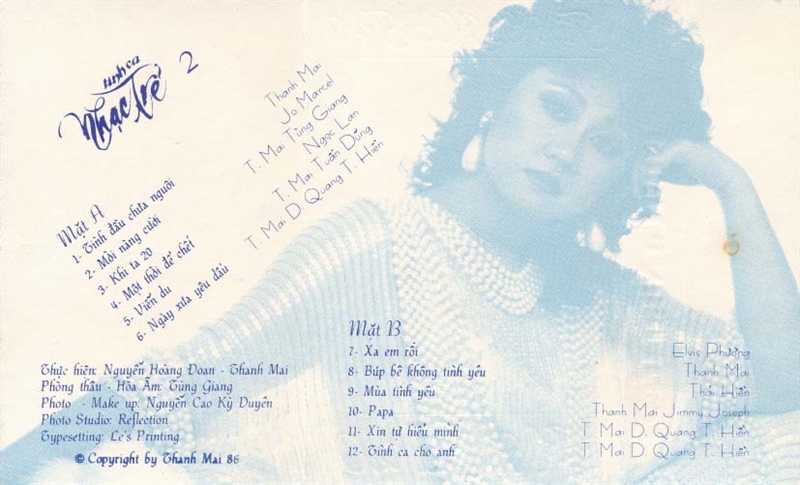 tình ca
Nhạc trẻ 2
Mặt A
1- Tình đầu chưa nguôi
2- Môi nàng cười
3- Khi ta 20
4- Một thời để chết
5- Viễn du
6- Ngày xưa yêu dấu
Thanh Mai
Jo Marcel
T. Mai Tùng Giang
Ngọc Lan
T. Mai Tuấn Dũng
T. Mai D. Quang T. Hiền
Mặt B
7- Xa em rồi
8- Búp bê không tình yêu
9- Mùa tình yêu
10- Papa
11- Xin tự hiểu mình
12- Tình ca cho anh
Elvis Phương
Thanh Mai
Thái Hiền
Thanh Mai Jimmy Joseph
T. Mai D. Quang T. Hiền
T. Mai D. Quang T. Hiền
Thực hiện: Nguyễn Hoàng Đoan - Thanh Mai
Phòng thâu - Hòa Âm: Tùng Giang
Photo - Make up: Nguyễn Cao Kỳ Duyên
Photo Studio: Reflection
Typesetting: Le's Printing
© Copyright by Thanh Mai 86